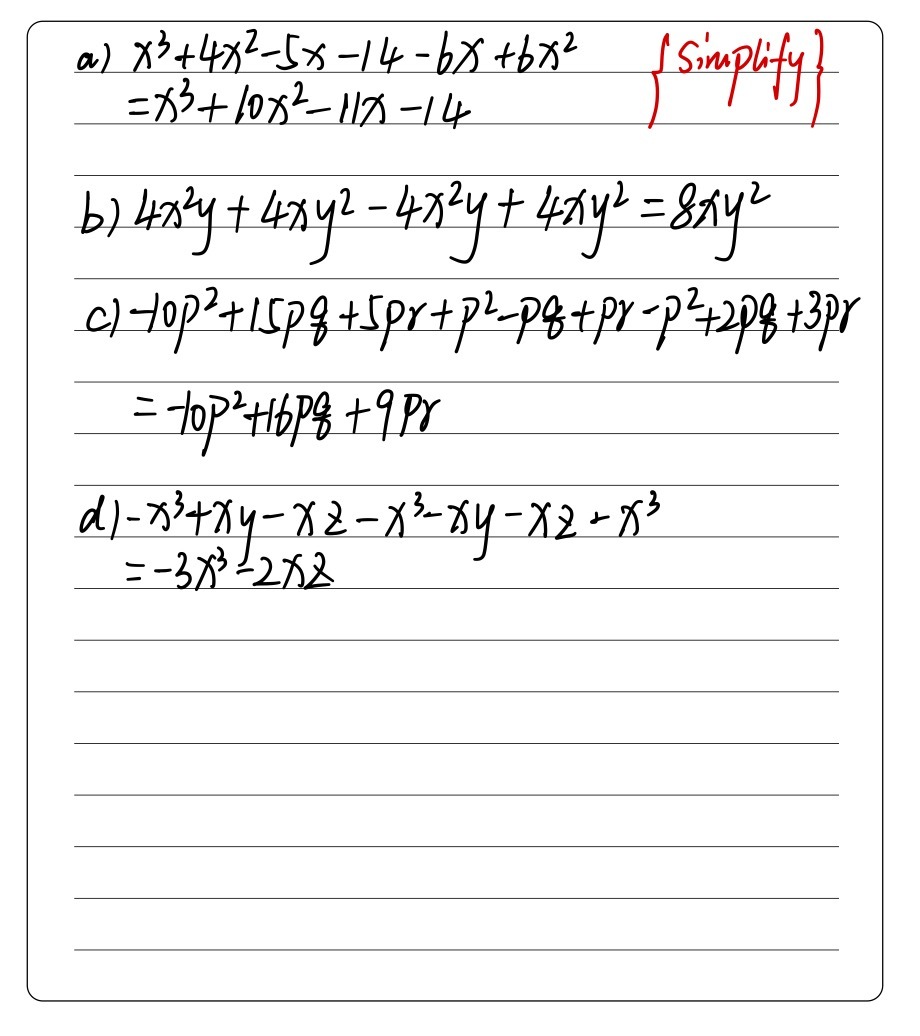 a) x³+4x²-5x-14-6x+6x² {Simplify}
=x³+10x²-11x-14
b) 4x²y+4xy²-4x²y+4xy²=8xy²
c) -10p²+15pq+5pr+p²-pq+pr-p²+2pq+3pr
=-10p²+16pq+9pr
d) -x³+xy-xz-x³-xy-xz-x³
=-3x³-2xz